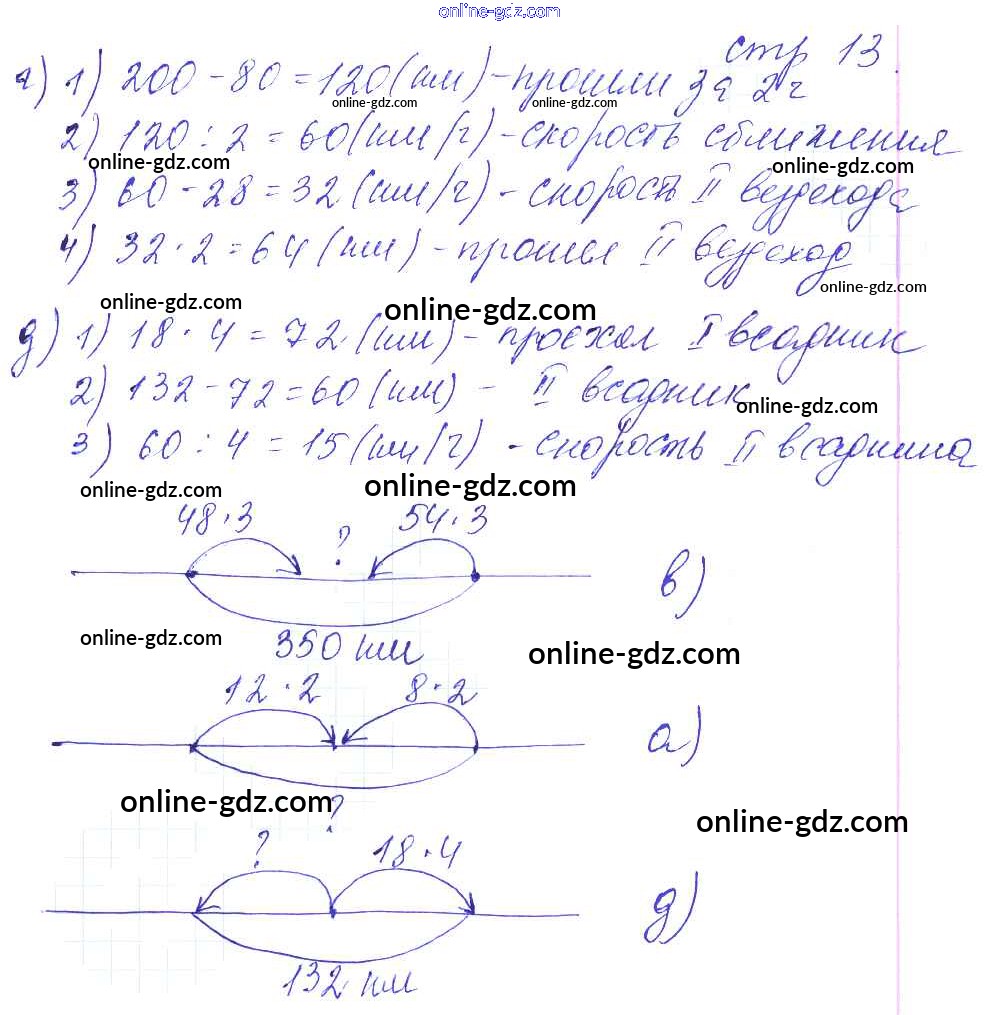 online-gdz.com
стр 13.
г) 1) 200 - 80 = 120 (км) - прошли за 2 ч
online-gdz.com online-gdz.com
2) 120 : 2 = 60 (км/ч) - скорость сближения
online-gdz.com online-gdz.com
3) 60 - 28 = 32 (км/ч) - скорость II вездехода
4) 32 · 2 = 64 (км) - прошёл II вездеход
online-gdz.com
online-gdz.com online-gdz.com
д) 1) 18 · 4 = 72 (км) - проехал I всадник
2) 132 - 72 = 60 (км) - II всадник
online-gdz.com
3) 60 : 4 = 15 (км/ч) - скорость II всадника
online-gdz.com online-gdz.com
48 · 3 ? 54 · 3
в)
online-gdz.com
350 км online-gdz.com
12 · 2 8 · 2
а)
online-gdz.com ? online-gdz.com
? 18 · 4
д)
132 км